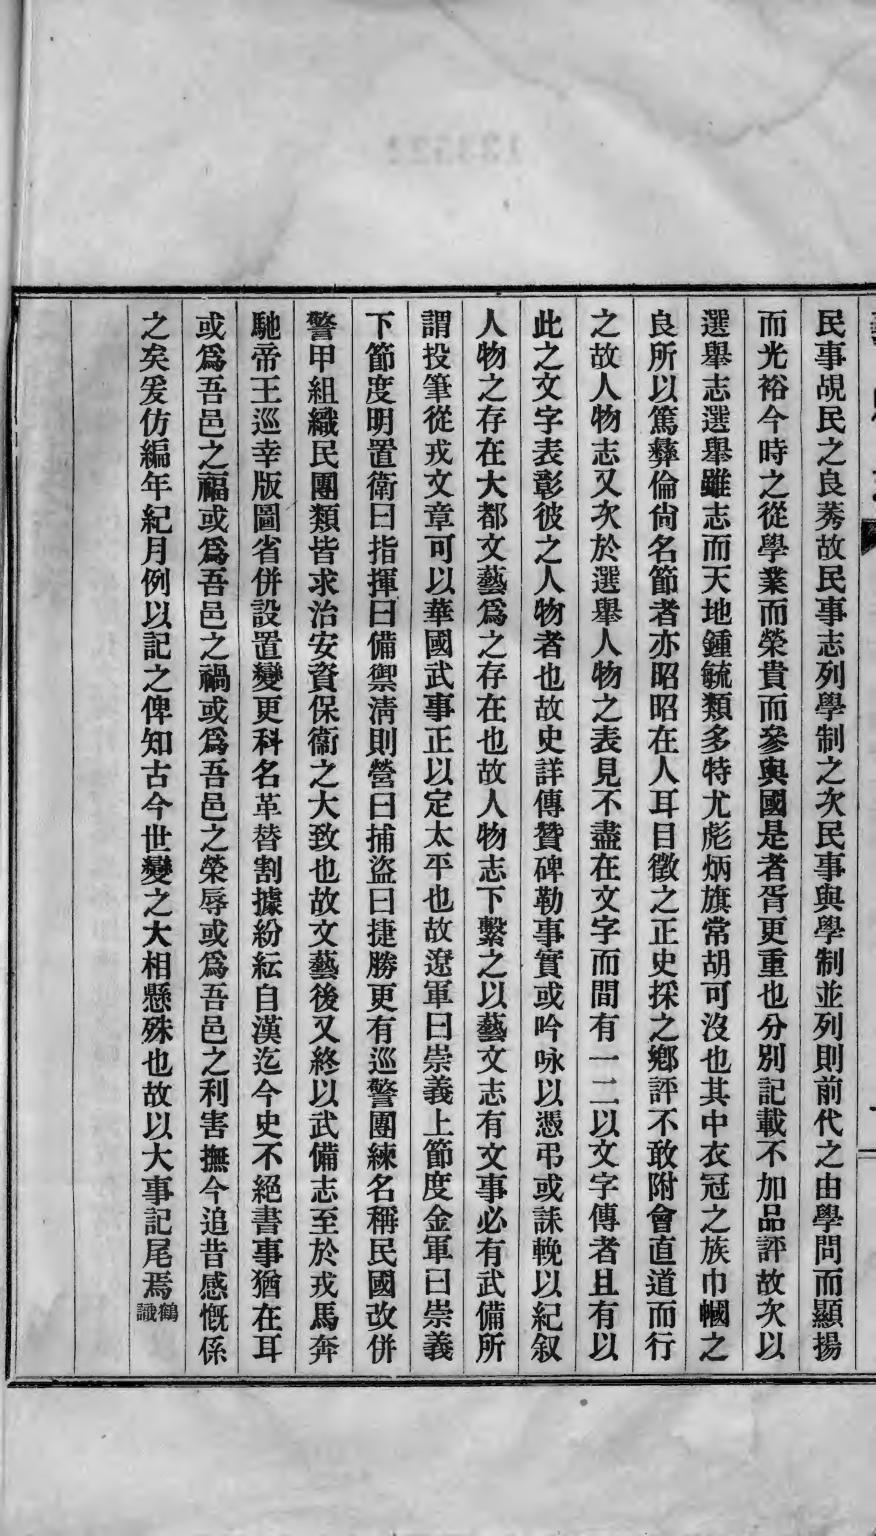 民事覘民之良莠故民事志列學制之次民事與學制並列則前代之由學問而顯揚
而光裕今時之從學業而榮貴而參與國是者胥更重也分別記載不加品評故次以
選舉志選舉雖志而天地鍾毓類多特尤彪炳旗常胡可沒也其中衣冠之族巾幗之
良所以篤彝倫尙名節者亦昭昭在人耳目徵之正史採之鄕評不敢附會直道而行
之故人物志又次於選舉人物之表見不盡在文字而間有一二以文字傳者且有以
此之文字表彰彼之人物者也故史詳傳贊碑勒事實或吟咏以憑弔或誄輓以紀叙
人物之存在大都文藝爲之存在也故人物志下繫之以藝文志有文事必有武備所
謂投筆從戎文章可以華國武事正以定太平也故遼軍曰崇義上節度金軍曰崇義
下節度明置衛曰指揮曰備禦淸則營曰捕盜曰捷勝更有巡警團練名稱民國改併
警甲組織民團類皆求治安資保衞之大致也故文藝後又終以武備志至於戎馬奔
馳帝王巡幸版圖省併設置變更科名革替割據紛紜自漢迄今史不絕書事猶在耳
或爲吾邑之福或爲吾邑之禍或爲吾邑之榮辱或爲吾邑之利害撫今追昔感慨係
之矣爰仿編年紀月例以記之俾知古今世變之大相懸殊也故以大事記尾焉鶴識